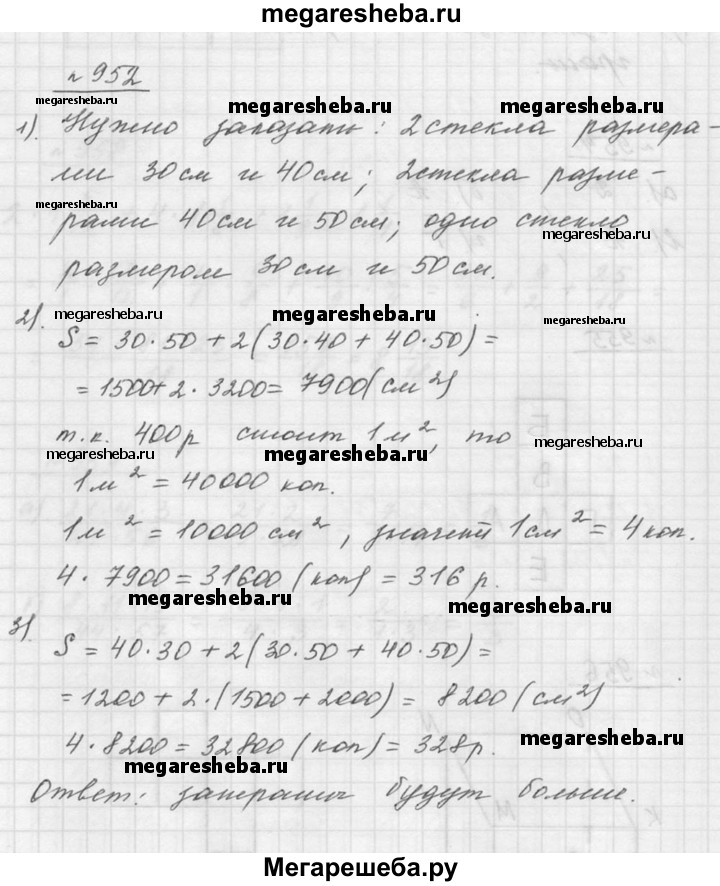 megaresheba.ru
№ 952
megaresheba.ru megaresheba.ru megaresheba.ru
1). Нужно заказать: 2 стекла размера-
ми 30 см и 40 см; 2 стекла разме-
megaresheba.ru
рами 40 см и 50 см; одно стекло
megaresheba.ru
размером 30 см и 50 см.
2).
megaresheba.ru megaresheba.ru megaresheba.ru
S = 30·50 + 2(30·40 + 40·50) =
= 1500 + 2·3200 = 7900 (см²)
т.к. 400 р стоит 1 м², то
megaresheba.ru megaresheba.ru megaresheba.ru
1 м² = 40000 коп.
1 м² = 10000 см², значит 1 см² = 4 коп.
4·7900 = 31600 (коп) = 316 р.
megaresheba.ru megaresheba.ru
3).
S = 40·30 + 2(30·50 + 40·50) =
= 1200 + 2·(1500 + 2000) = 8200 (см²)
4·8200 = 32800 (коп) = 328 р.
megaresheba.ru megaresheba.ru
Ответ: затраты будут больше.
Мегарешеба.ру